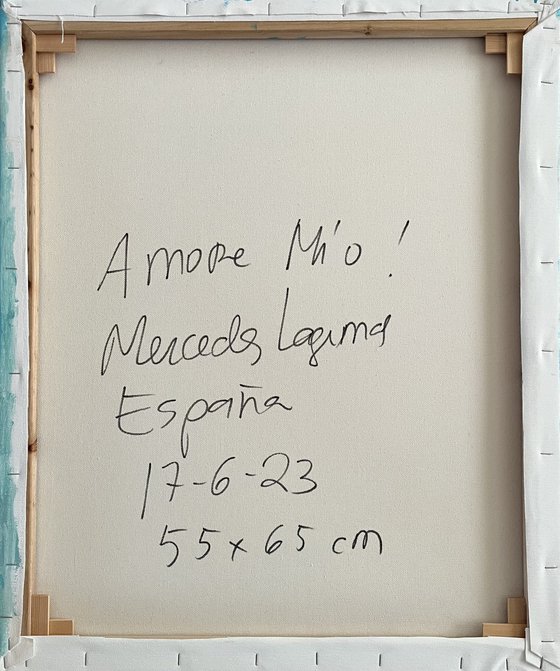 Amore Mío!
Mercedes Laguna
España
17-6-23
55x65 cm